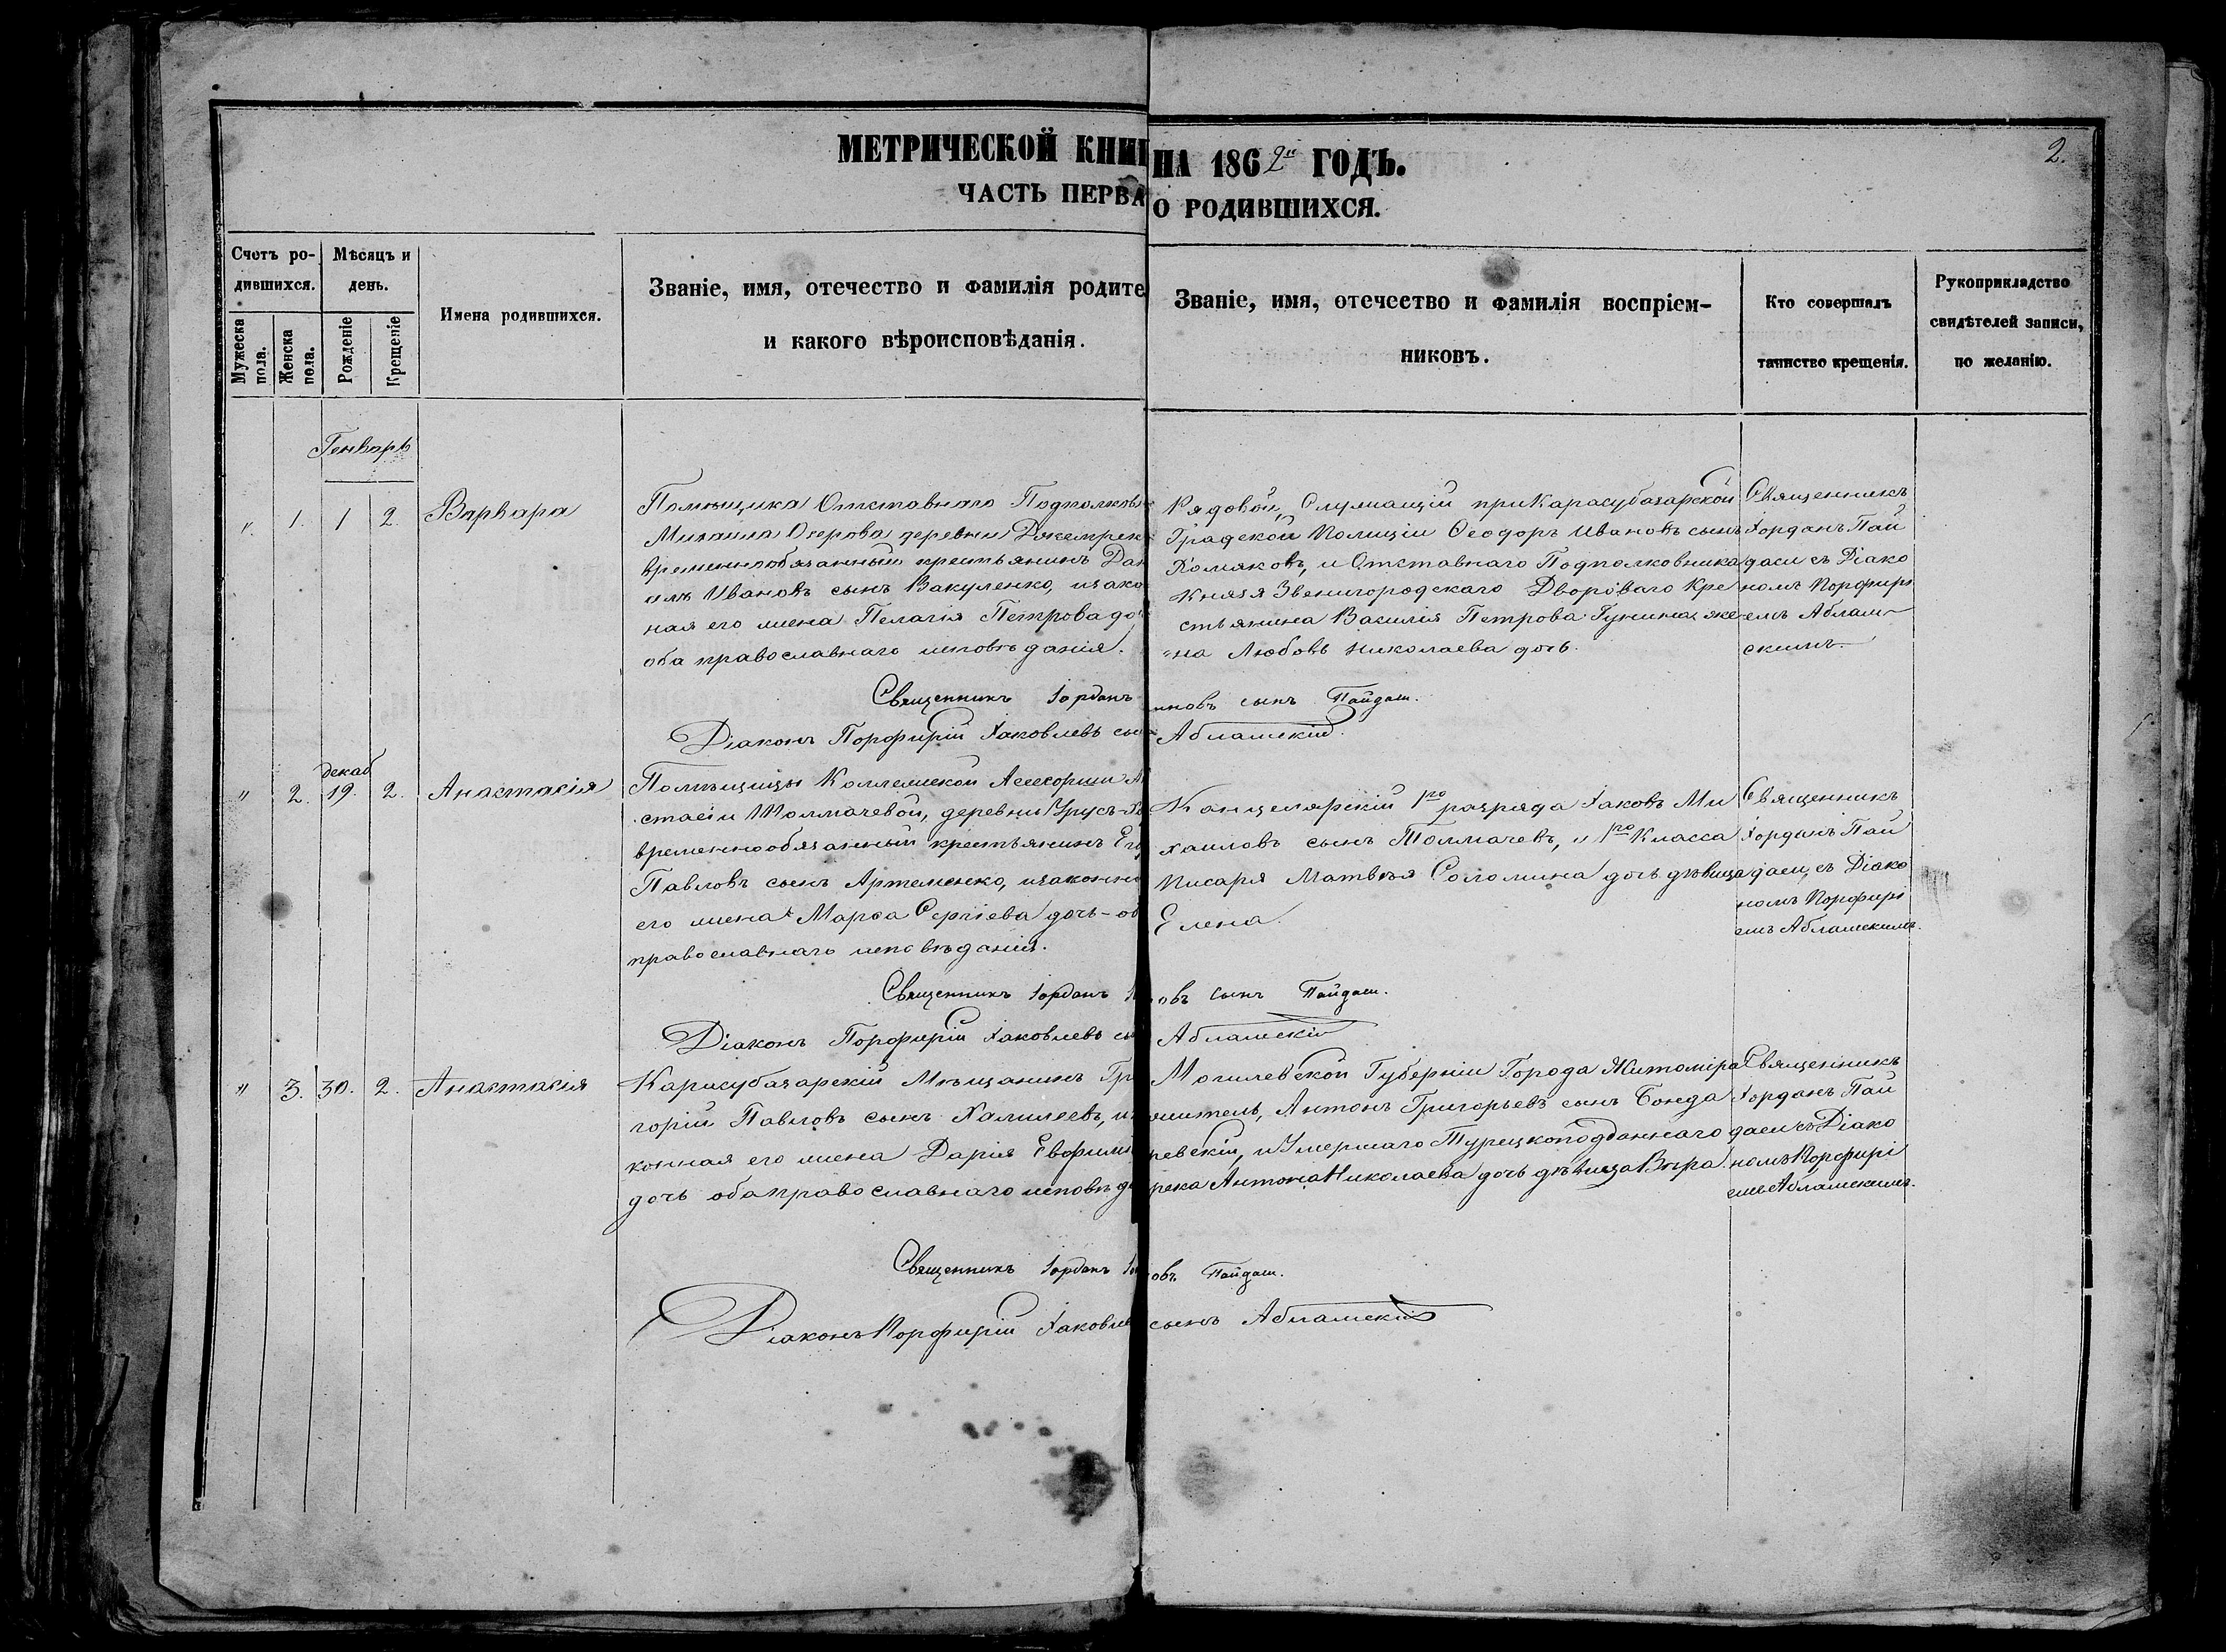 МЕТРИЧЕСКОЙ КНИГ
НА 1862й ГОДЪ.
2.
ЧАСТЬ ПЕРВА
О РОДИВШИХСЯ.
Счетъ ро-
дившихся.
Мужеска
пола.
Женска
пола.
Мѣсяцъ и
день.
Рожденіе
Крещеніе
Имена родившихся.
Званіе, имя, отечество и фамилія родите
и какого вѣроисповѣданія.
Званіе, имя, отечество и фамилія воспріем-
никовъ.
Кто совершалъ
таинство крещенія.
Рукоприкладство
свидѣтелей записи,
по желанію.
Генварь
" 1. 1 2. Варвара
Помѣщика Отставнаго Подполков
Михаила Озерова деревни
временнообязанный крестьянинъ Дан
илъ Ивановъ сынъ Вакуленко, изако
ная его жена Пелагія Петрова до
оба православнаго исповѣданія.
Рядовой, Служащій при Карасубазарской
Градской Полиціи Ѳеодоръ Ивановъ сынъ
Хомяковъ, и Отставнаго Подполковника
Князя Звенигородскаго Двороваго Кре
стьянина Василія Петрова Гунина же
"на Любовь Николаева дочь.
Священникъ
Іорданъ Пай
даси съ Діако
номъ Порфирі
емъ Аблаж
скимъ.
Священникъ Іорданъ
новъ сынъ Пайдаси.
Діаконъ Порфирій Іаковлевъ сын
Аблажскій.
" 2. декаб 19. 2. Анастасія
Помѣщицы Коллежской Асессорши
стасіи Толмачевой, деревни Урусъ-Хо
временнообязанный крестьянинъ Его
Павловъ сынъ Артеменко, изаконна
его жена Марѳа Сергіева дочь - об
православнаго исповѣданія.
Канцелярскій 1го разряда Іаковъ Ми
хаиловъ сынъ Толмачевъ, и 1го Класса
Писаря Матвѣя Соломина дочь дѣвица
Елена.
Священникъ
Іорданъ Пай
даси, съ Діако
номъ Порфирі
емъ Аблажскимъ.
Священникъ Іорданъ
овъ сынъ Пайдаси.
Діаконъ Порфирій Іаковлевъ сы
Аблажскій
" 3. 30. 2. Анастасія
Карасубазарскій Мѣщанинъ Гри
горій Павловъ сынъ Халилеевъ, и
конная его жена Дарія Евфимі
дочь оба православнаго исповѣда
Могилевской Губерніи Города Житоміра
житель, Антонъ Григорьевъ сынъ Бонда
ревскій, и Умершаго Турецкоподданнаго
грека Антона Николаева дочь дѣвица Вѣра.
Священникъ
Іорданъ Пай
даси съ Діако
номъ Порфирі
емъ Аблажскимъ.
Священникъ Іорданъ
овъ Пайдаси.
Діаконъ Порфирій Іаковлев
сынъ Аблажскій